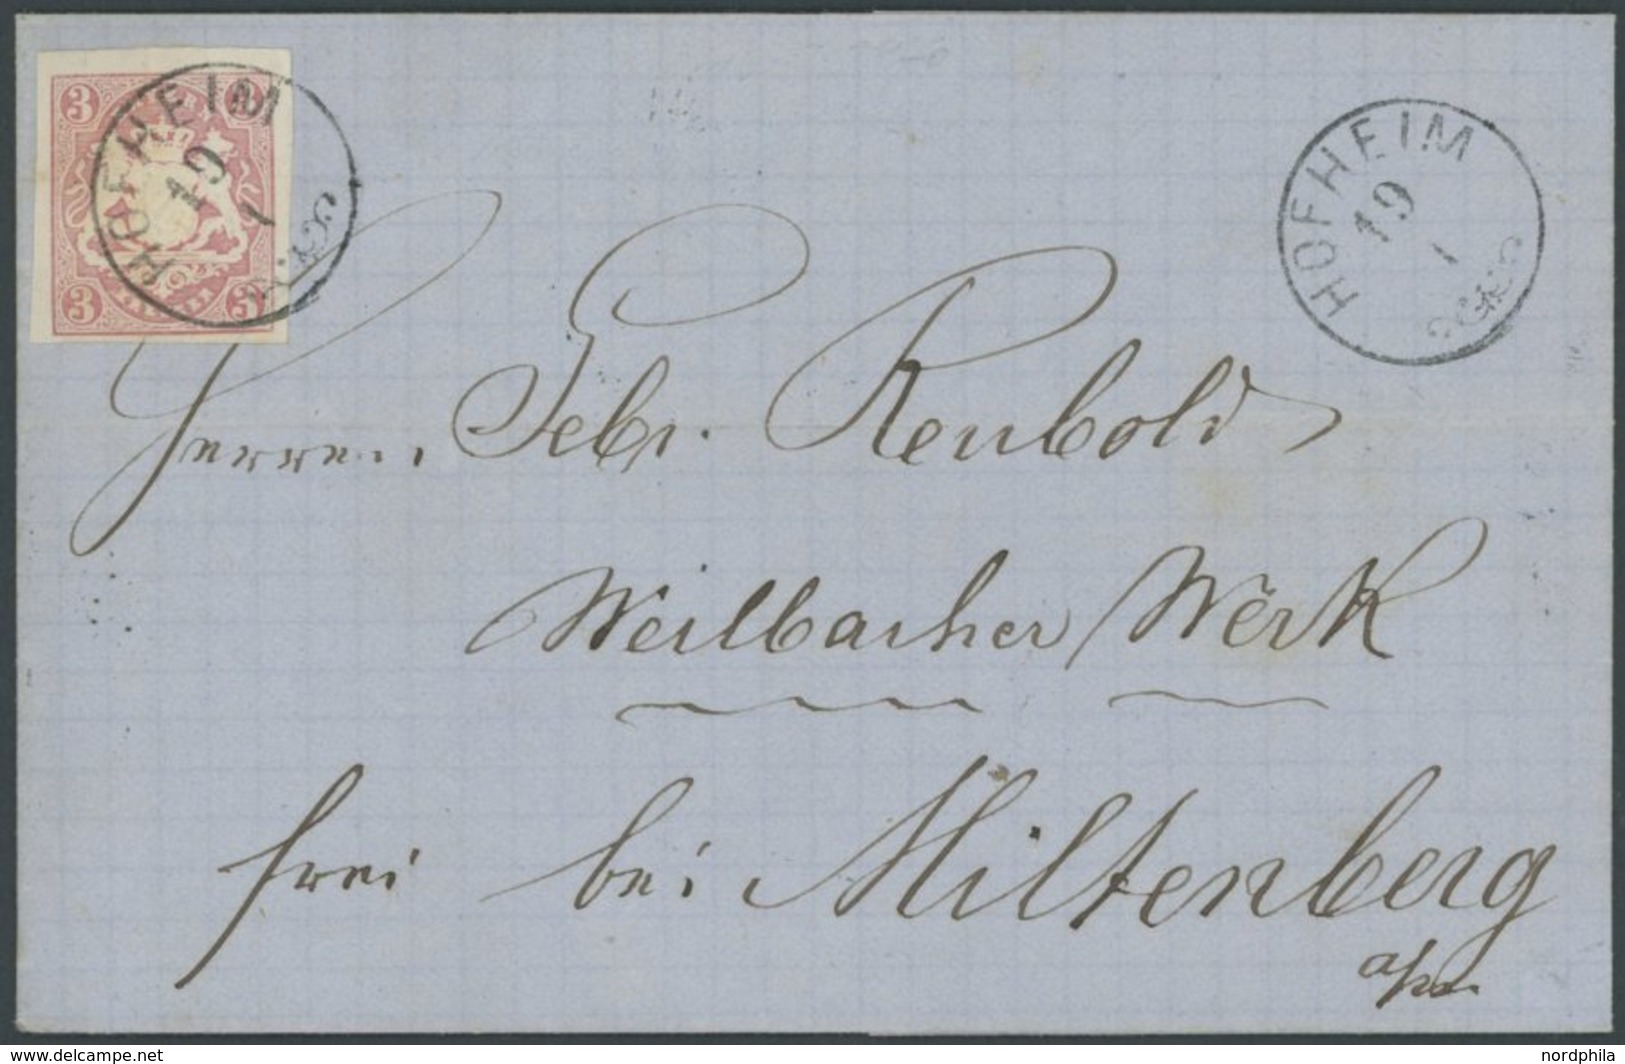 3 3
3 3
HOFHEIM
19
1
HOFHEIM
19
1
Herren Gebr. Reubold
Weilbacher Werk
frei bei Miltenberg
a/m
www.delcampe.net
nordphila